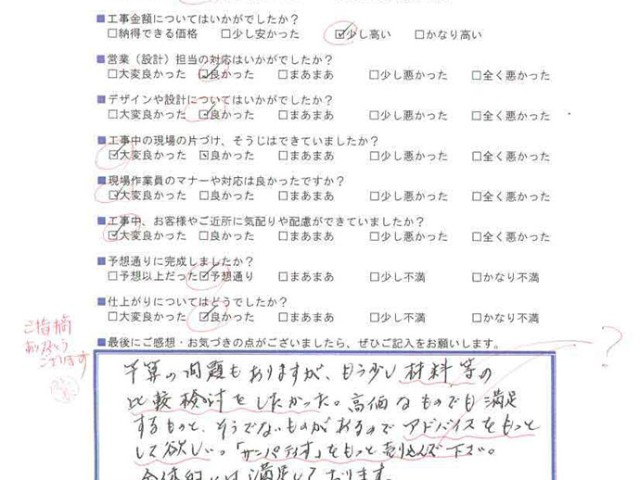 ■工事金額についてはいかがでしたか?
□納得できる価格 □少し安かった ☑少し高い □かなり高い
■営業(設計)担当の対応はいかがでしたか?
□大変良かった ☑良かった □まあまあ □少し悪かった □全く悪かった
■デザインや設計についてはいかがでしたか?
□大変良かった ☑良かった □まあまあ □少し悪かった □全く悪かった
■工事中の現場の片づけ、そうじはできていましたか?
☑大変良かった ☑良かった □まあまあ □少し悪かった □全く悪かった
■現場作業員のマナーや対応は良かったですか?
☑大変良かった □良かった □まあまあ □少し悪かった □全く悪かった
■工事中、お客様やご近所に気配りや配慮ができていましたか?
☑大変良かった □良かった □まあまあ □少し悪かった □全く悪かった
■予想通りに完成しましたか?
□予想以上だった ☑予想通り □まあまあ □少し不満 □かなり不満
■仕上がりについてはどうでしたか?
□大変良かった ☑良かった □まあまあ □少し不満 □かなり不満
ご指摘
ありがとう
ございます
■最後にご感想・お気づきの点がございましたら、ぜひご記入をお願いします。
?
予算の問題もありますが、もう少し材料等の
比較検討をしたかった。高価なものでも満足
するものと、そうでないものがあるのでアドバイスをもっと
して欲しい。「サンパティオ」をもっと売り込んで下さい。
全体的には満足しております。